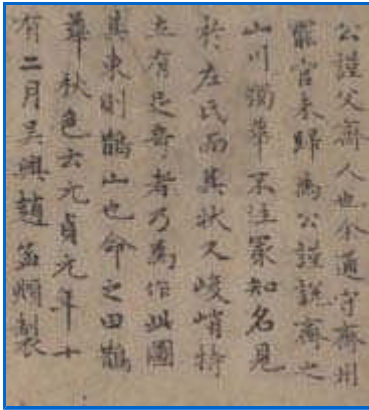 公謹父齊人也余通守齊州
罷官来歸為公謹說齊之
山川獨華不注冣知名見
於左氏而其狀又峻峭特
立有足奇者乃為作此圖
其東則鵲山也命之曰鵲
華秋色云元貞元年十
有二月吳興趙孟頫製